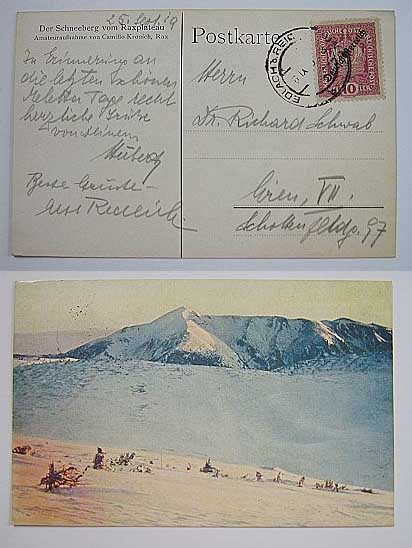 25. Sept. 19
Der Schneeberg vom Raxplateau
Amateuraufnahme von Camillo Kronich, Rax
In Erinnerung an
die letzten schönen
Tage recht
herzliche Grüße
von deinem
Beste Grüße
Postkarte
EDLACH b. REI
10 HELLER
Herrn
Dr. Richard Schwab
Wien, VII.
Schottenfeldg. 97